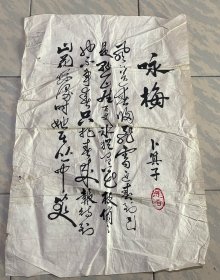 咏梅
卜算子
风雨送春归飞雪迎春到已
是悬崖百丈冰犹有花枝俏
俏也不争春只把春来报待到
山花烂漫时她在丛中笑